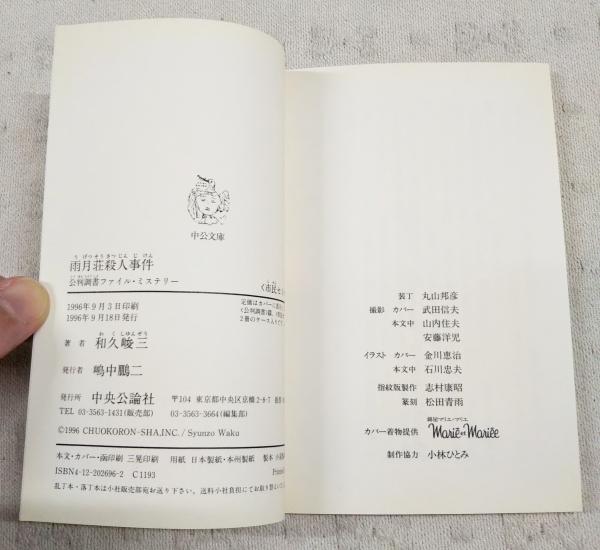 中公文庫
うげつそうさつじんじけん
雨月荘殺人事件
公判調書ファイル・ミステリー
〈市民セ
定価はカバーに
〈公判調書篇、
2冊のケース入り
1996年9月3日印刷
1996年9月18日発行
わくしゅんぞう
著者 和久峻三
発行者 嶋中鵬二
発行所 中央公論社 〒104 東京都中央区京橋2-8-7
TEL 03-3563-1431(販売部) 03-3563-3664(編集部)
©1996 CHUOKORON-SHA,INC./Syunzo Waku
本文・カバー・函印刷 三晃印刷 用紙 日本製紙・本州製紙 製本 小
ISBN4-12-202696-2 C1193 Printed
乱丁本・落丁本は小社販売部宛お送り下さい。送料小社負担にてお取り替え
装丁 丸山邦彦
撮影 カバー 武田信夫
本文中 山内住夫
安藤洋児
イラスト カバー 金川恵治
本文中 石川忠夫
指紋版製作 志村康昭
篆刻 松田青雨
銀座マリエ・マリエ
カバー着物提供 Marié et Mariée
制作協力 小林ひとみ